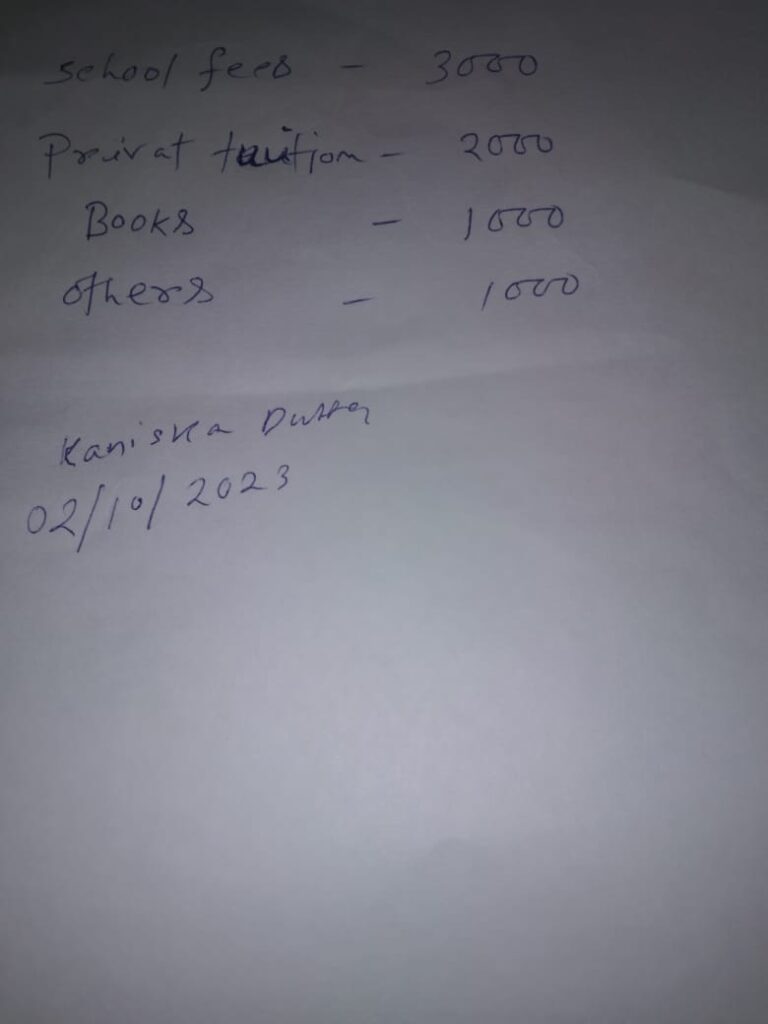 school fees - 3000
Preivat tuition - 2000
Books - 1000
others - 1000
Kaniska Dutta
02/10/2023